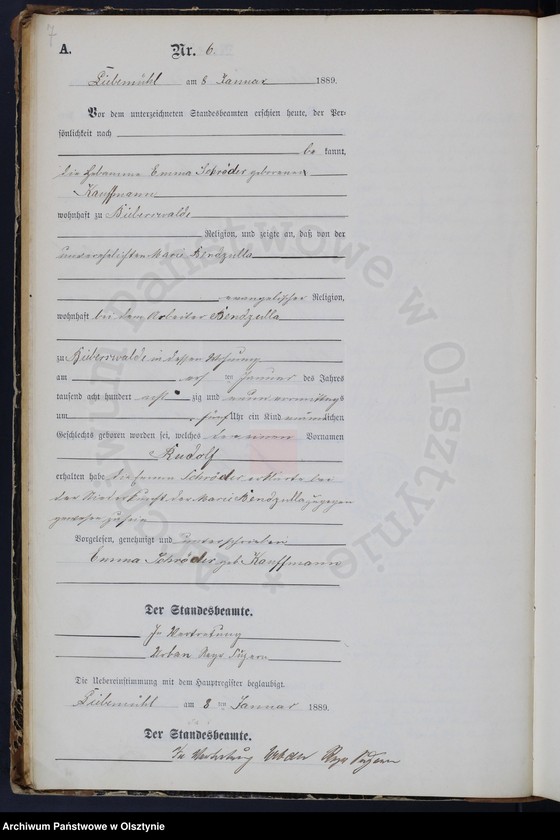 7
A. Nr. 6.
Liebemühl am 8 Januar 1889.
Vor dem unterzeichneten Standesbeamten erschien heute, der Per-
sönlichkeit nach
be kannt,
die Hebamme Emma Schröder geborenen
Kauffmann
wohnhaft zu Bieberswalde
Religion, und zeigte an, daß von der
unverehelichten Marie Bendzulla
evangelischer Religion,
wohnhaft bei dem Arbeiter Bendzulla
zu Bieberswalde in dessen Wohnung
am ten Januar des Jahres
tausend acht hundert acht zig und neun vormittags
um fünf Uhr ein Kind männlichen
Geschlechts geboren worden sei, welches den Vornamen
Rudolf
erhalten habe die Emma Schröder erklärte bei
der Niederkunft der Marie Bendzulla zugegen
gewesen zu sein
Vorgelesen, genehmigt und unterschrieben
Emma Schröder geb Kauffmann
Der Standesbeamte.
In Vertretung
Urban
Die Uebereinstimmung mit dem Hauptregister beglaubigt.
Liebemühl am 8 ten Januar 1889.
Der Standesbeamte.
In Vertretung
Archiwum Państwowe w Olsztynie
Archiwum Państwowe w Olsztynie